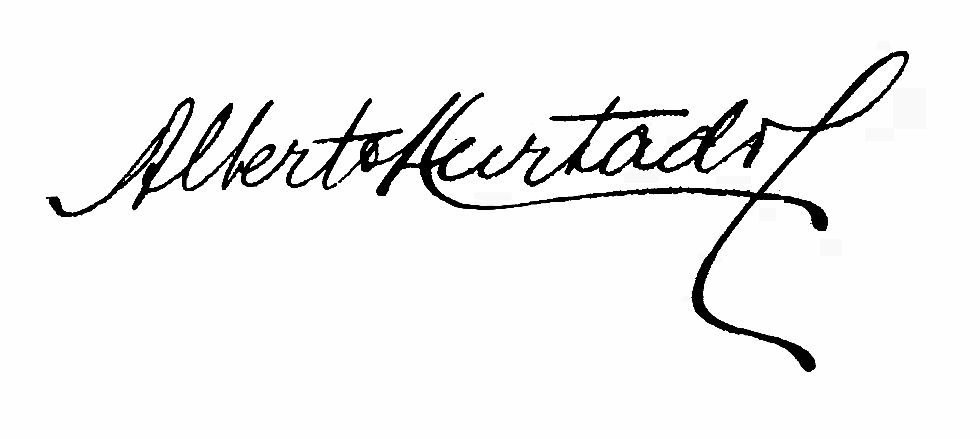 Alberto Hurtado